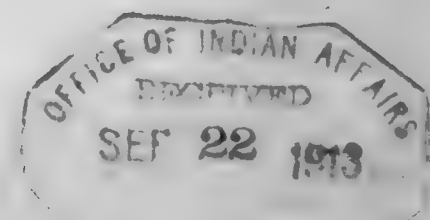 OFFICE OF INDIAN AFFAIRS
RECEIVED
SEP 22 1913